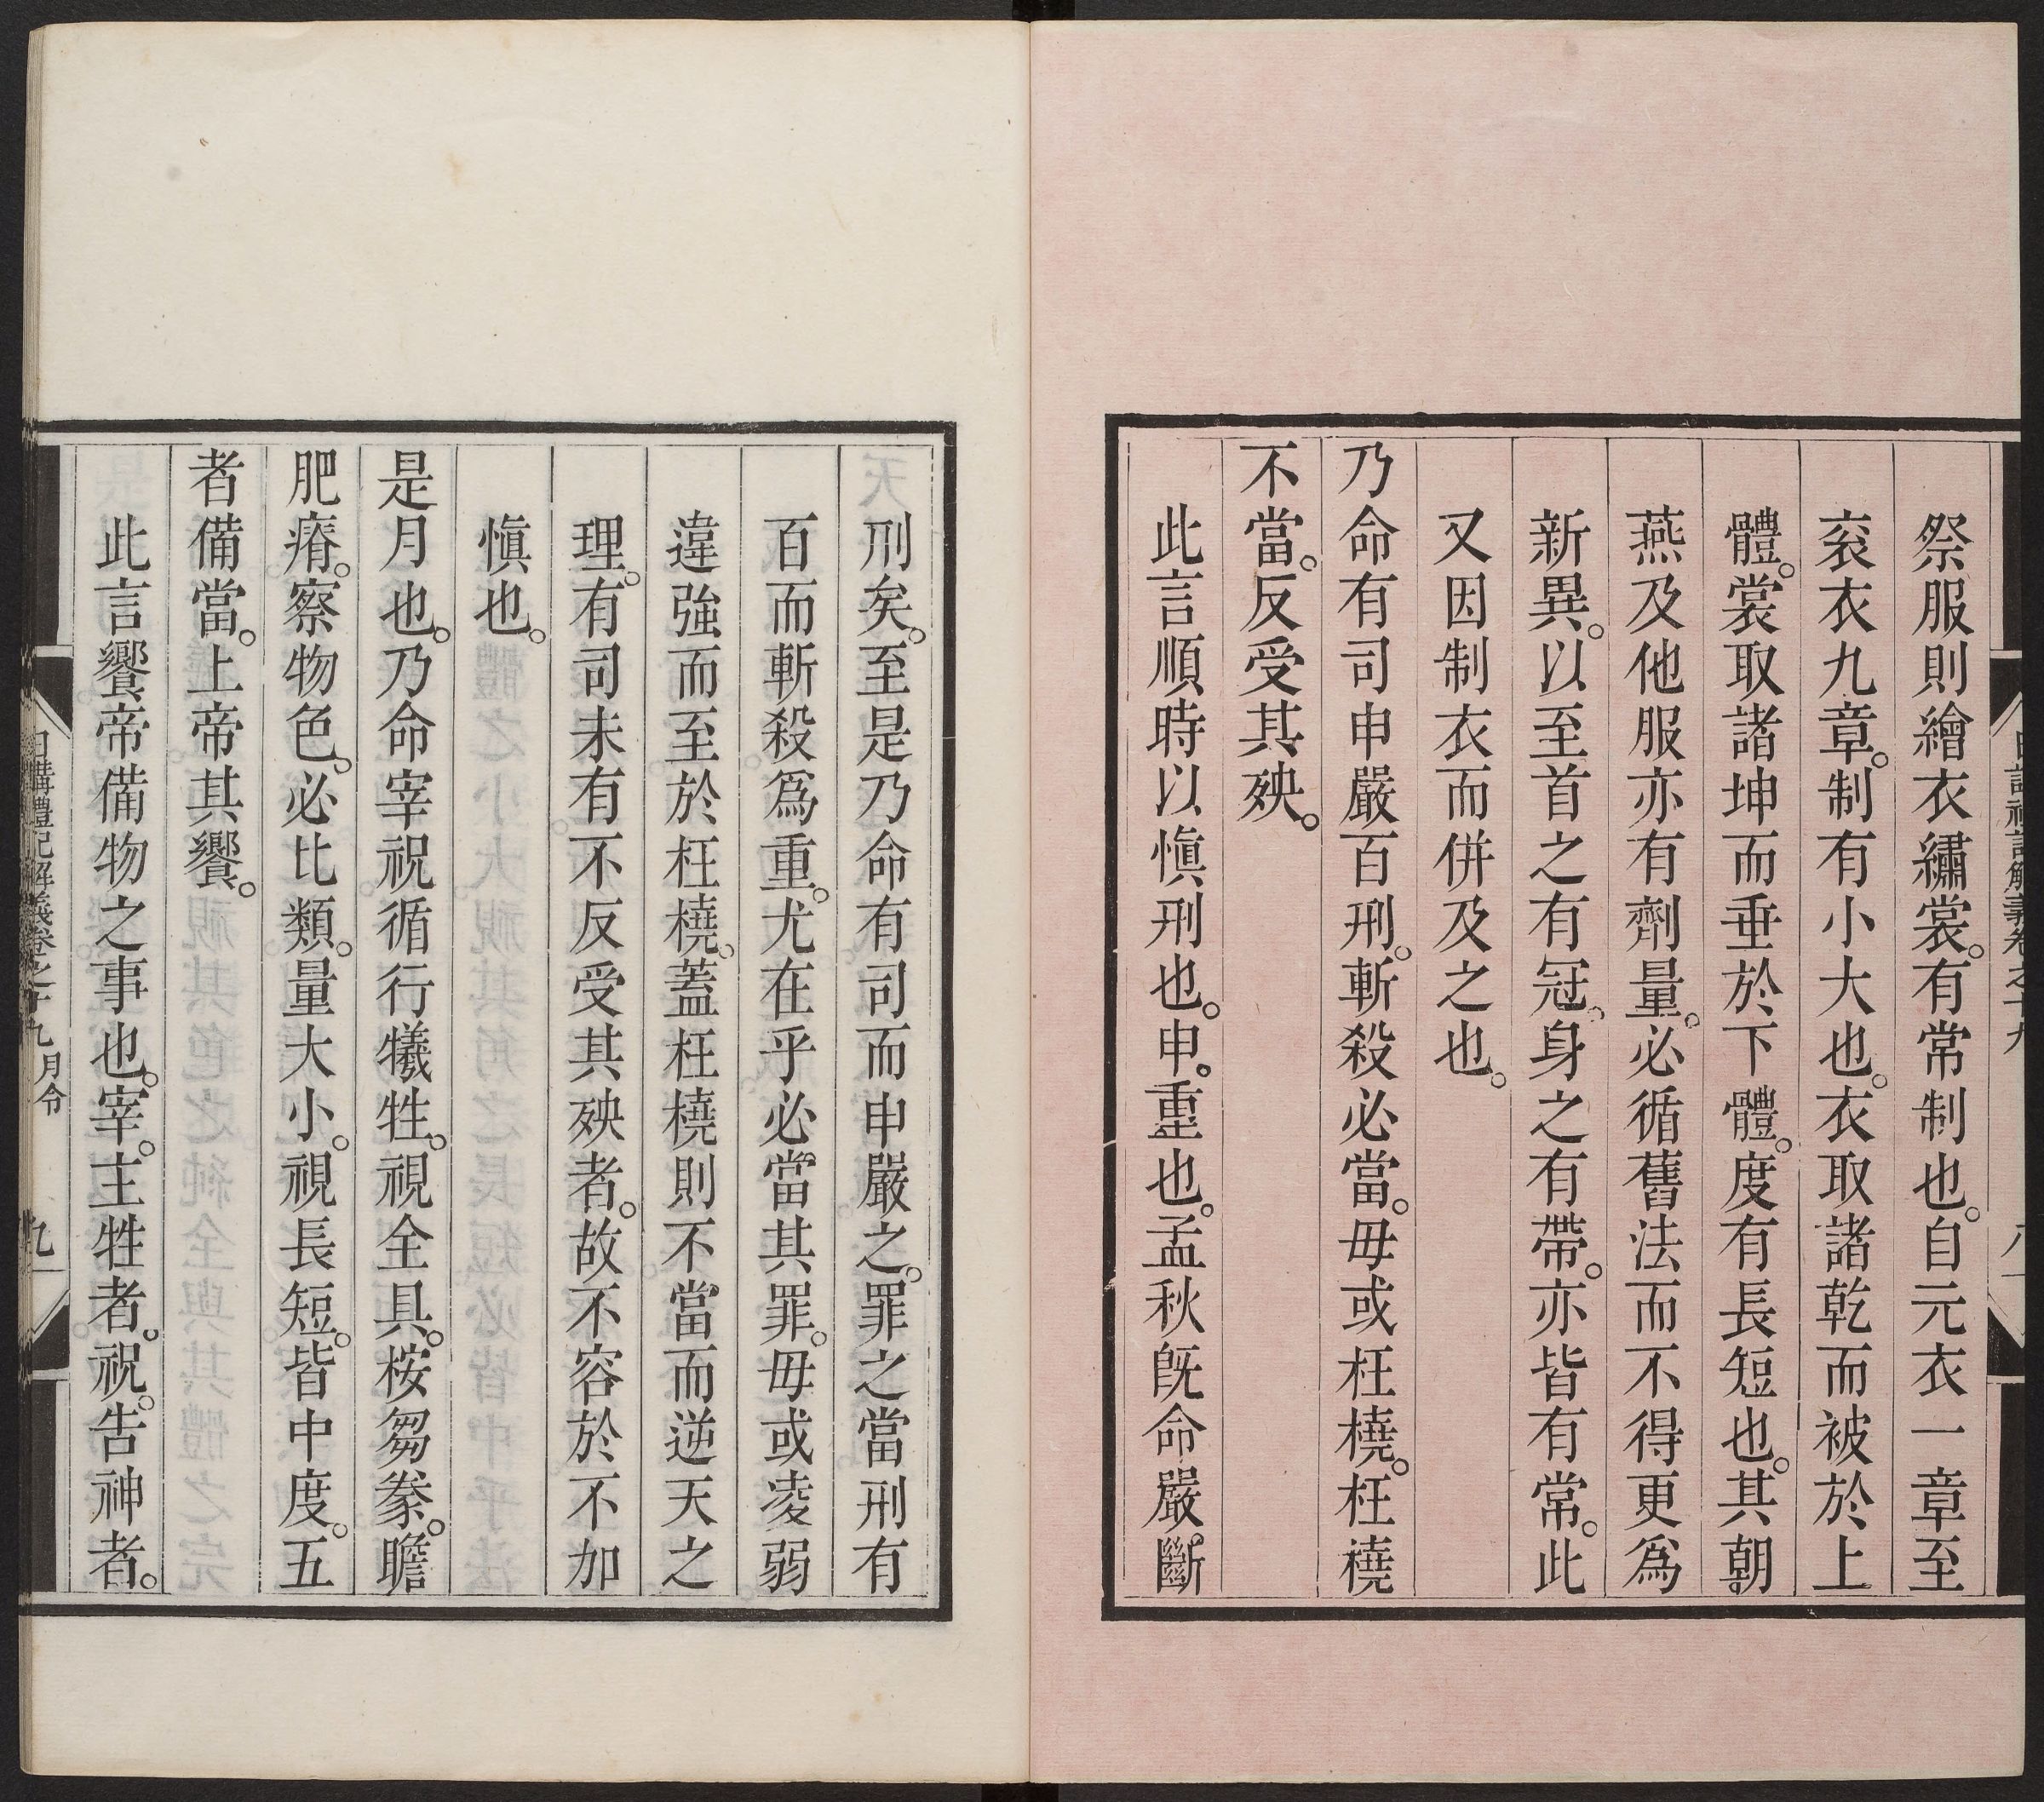 祭服則繪衣繡裳。有常制也。自元衣一章至
衮衣九章。制有小大也。衣取諸乾而被於上
體。裳取諸坤而垂於下體。度有長短也。其朝
燕及他服亦有劑量。必循舊法而不得更爲
新異。以至首之有冠。身之有帶。亦皆有常。此
又因制衣而併及之也。
乃命有司申嚴百刑。斬殺必當。毋或枉橈。枉橈
不當。反受其殃。
此言順時以愼刑也。申。重也。孟秋旣命嚴。斷
刑矣。至是乃命有司而申嚴之。罪之當刑有
百而斬殺爲重。尤在乎必當其罪。毋或凌弱
違強而至於枉橈。蓋枉橈則不當而逆天之
理。有司未有不反受其殃者。故不容於不加
愼也。
是月也。乃命宰祝循行犧牲。視全具。桉芻豢。瞻
肥瘠。察物色。必比類。量大小。視長短。皆中度。五
者備當。上帝其饗。
此言饗帝備物之事也。宰。主牲者。祝。告神者。
日講禮記解義卷之十九 月令 九